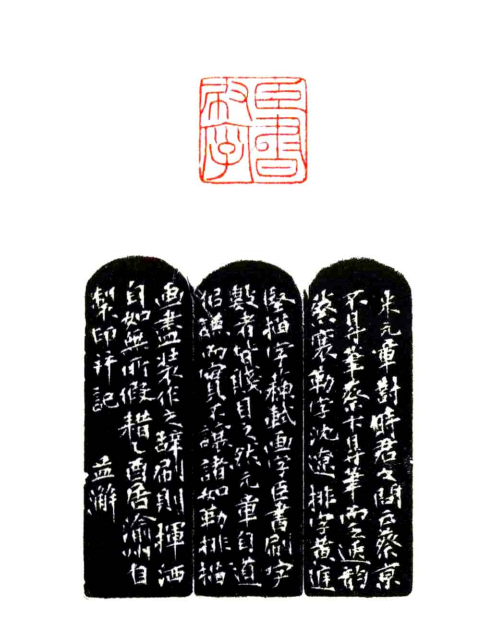 臣書
刷字
米元章對時君之問云蔡京
不得筆蔡卞得筆而乏逸韵
蔡襄勒字沈遼排字黄庭
堅描字蘇軾画字臣書刷字
數者皆賤目之然元章自道
似謙而實不謙諸如勒排描
画盡裝作之辭刷則揮洒
自如無所假耤乙酉居渝州自
製印并記